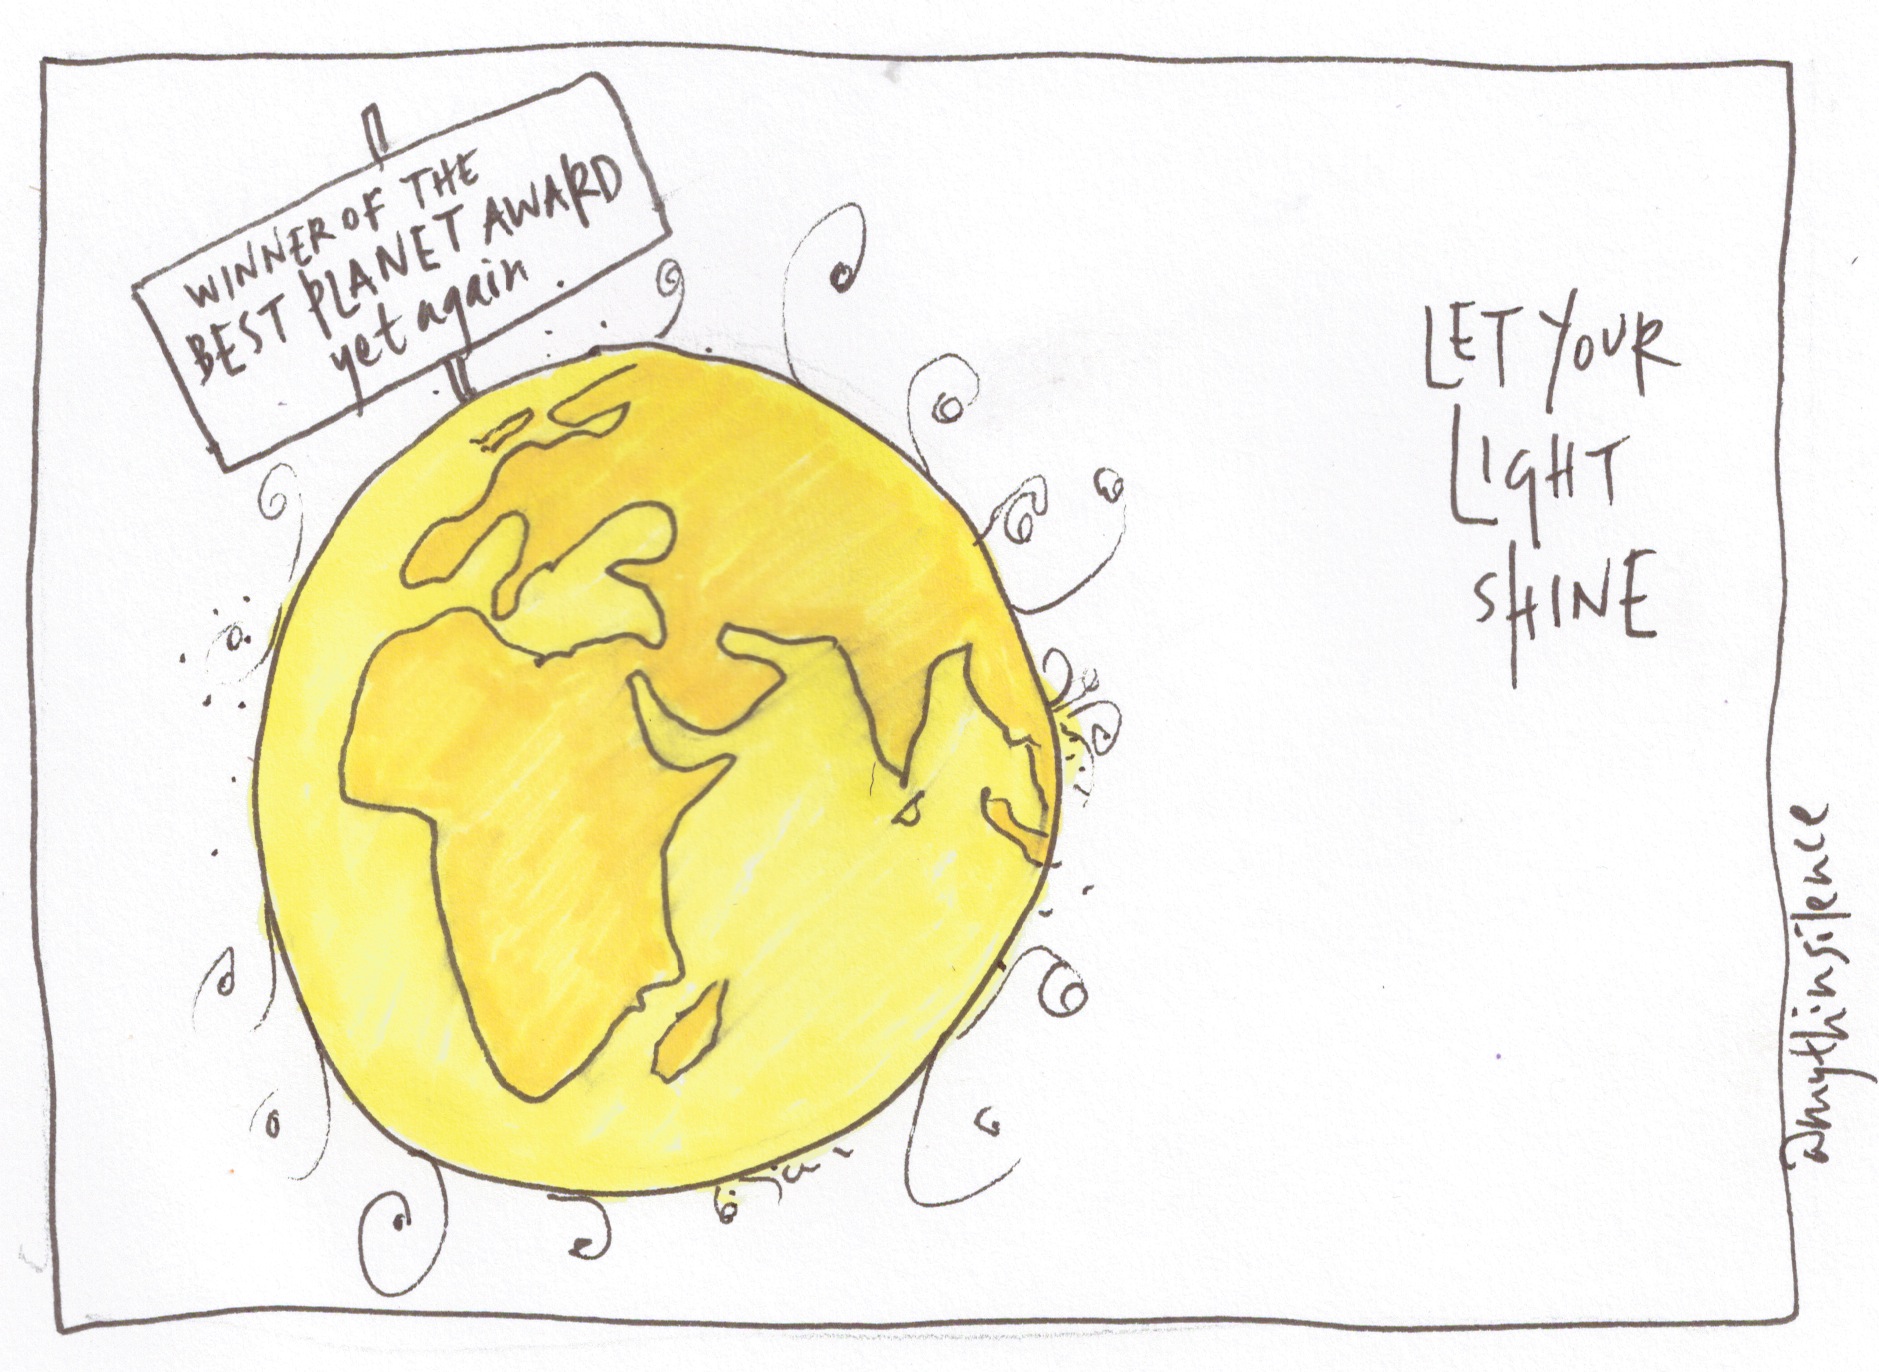 WINNER OF THE
BEST PLANET AWARD
yet again.
LET YOUR
LIGHT
SHINE
amythinsilence